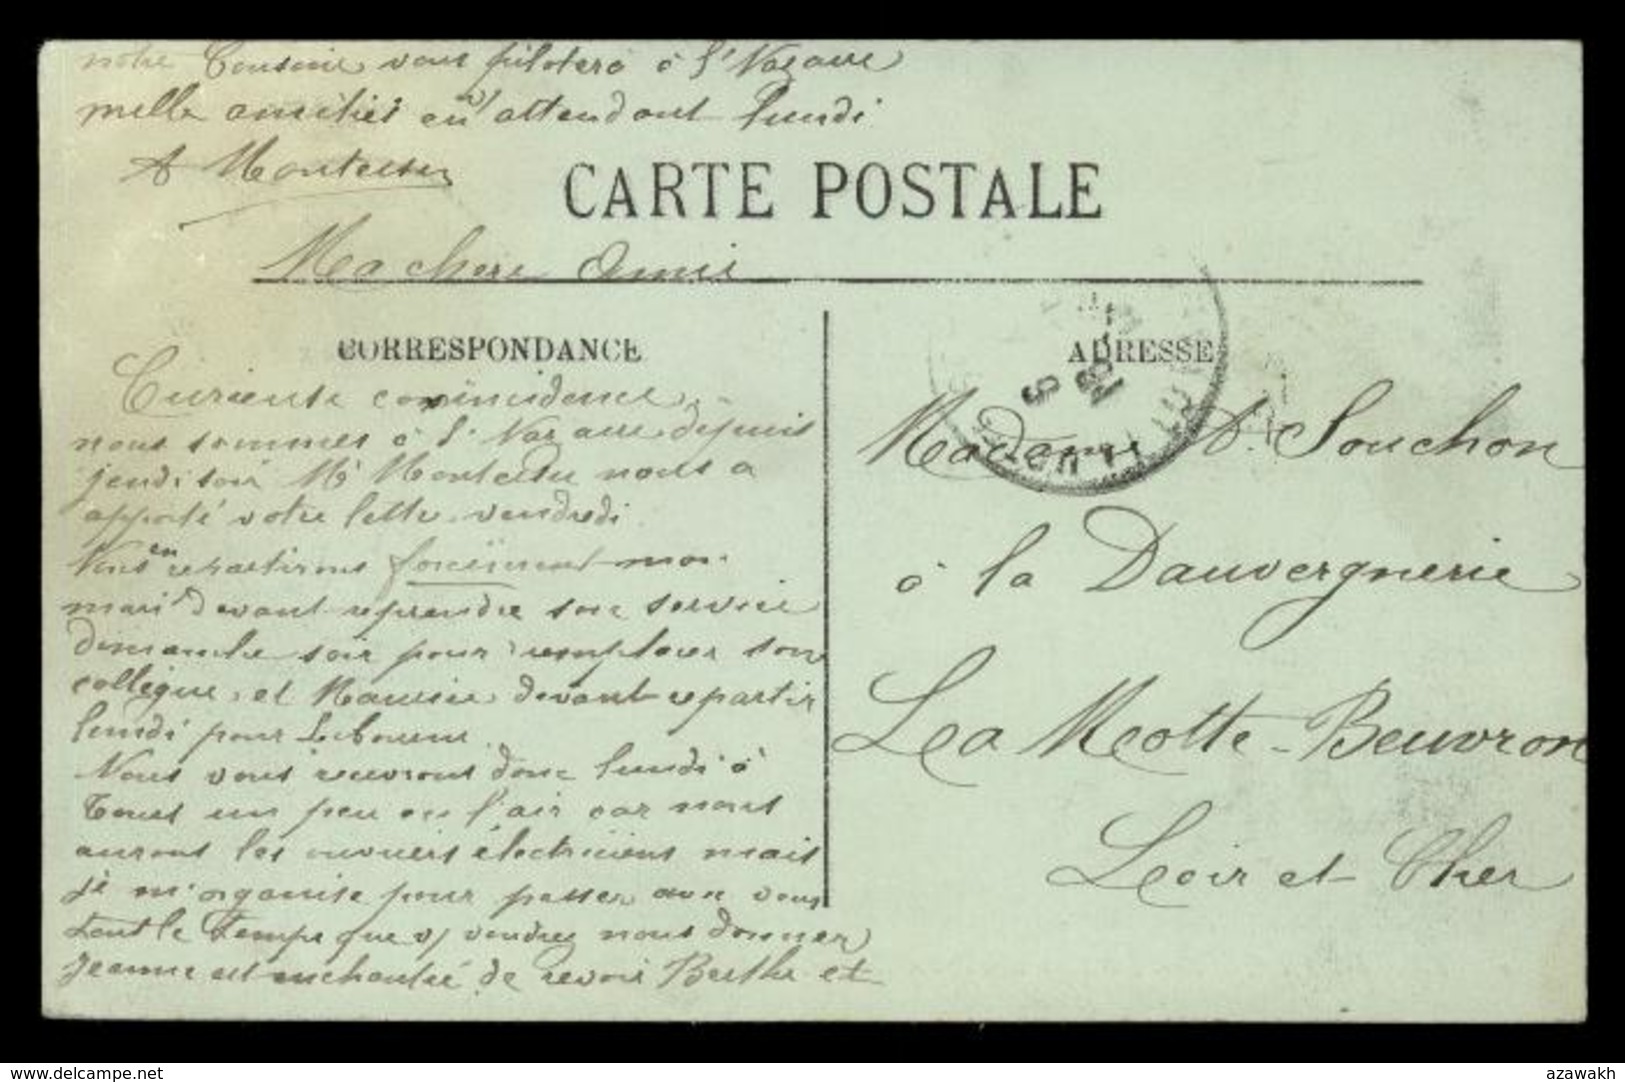 notre Cousine vous pilotera à St Nazaire
mille amitiés en attendant lundi
A Montertu
CARTE POSTALE
Ma chere Amie
CORRESPONDANCE
ADRESSE
Curieuse coïncidence
nous sommes à St Nazaire depuis
jeudi soir Mr nous a
apporté votre lettre vendredi
Nous en repartirons forcément mon
mari devant reprendre son service
dimanche soir pour remplacer son
collègue, et Maurice devant repartir
lundi pour
Nous vous recevrons donc lundi à
Tours un peu en l'air car nous
aurons les ouvriers électriciens mais
je m'organise pour passer avec vous
tout le temps que v/ voudrez nous donner
Jeanne est enchantée de revoir Berthe et
Madame A. Souchon
à la Dauvergnerie
La Motte-Beuvron
Loir et Cher
www.delcampe.net
azawakh